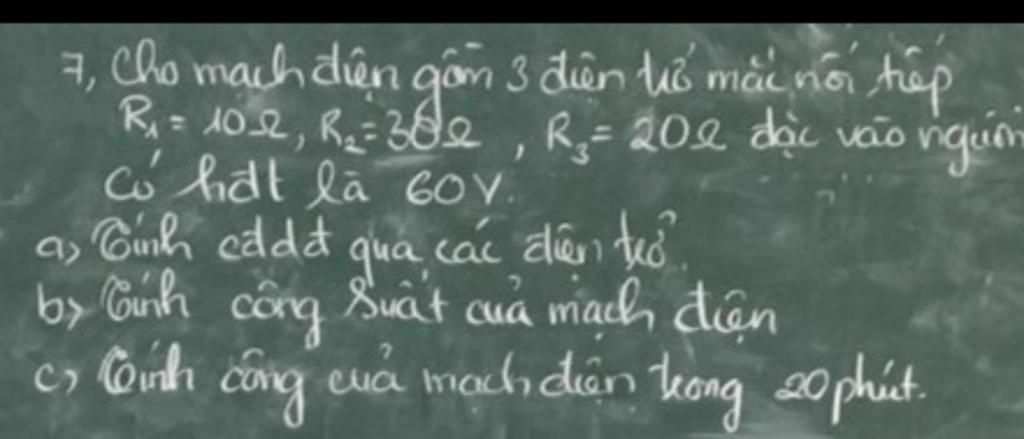 7, Cho mạch điện gồm 3 điện trở mắc nối tiếp
R₁ = 10Ω, R₂ = 30Ω, R₃ = 20Ω đặc vào nguồn
Có hđt là 60V.
a) Tính cđdđ qua các điện trở.
b) Tính công suất của mạch điện
c) Tính công của mạch điện trong 20 phút.